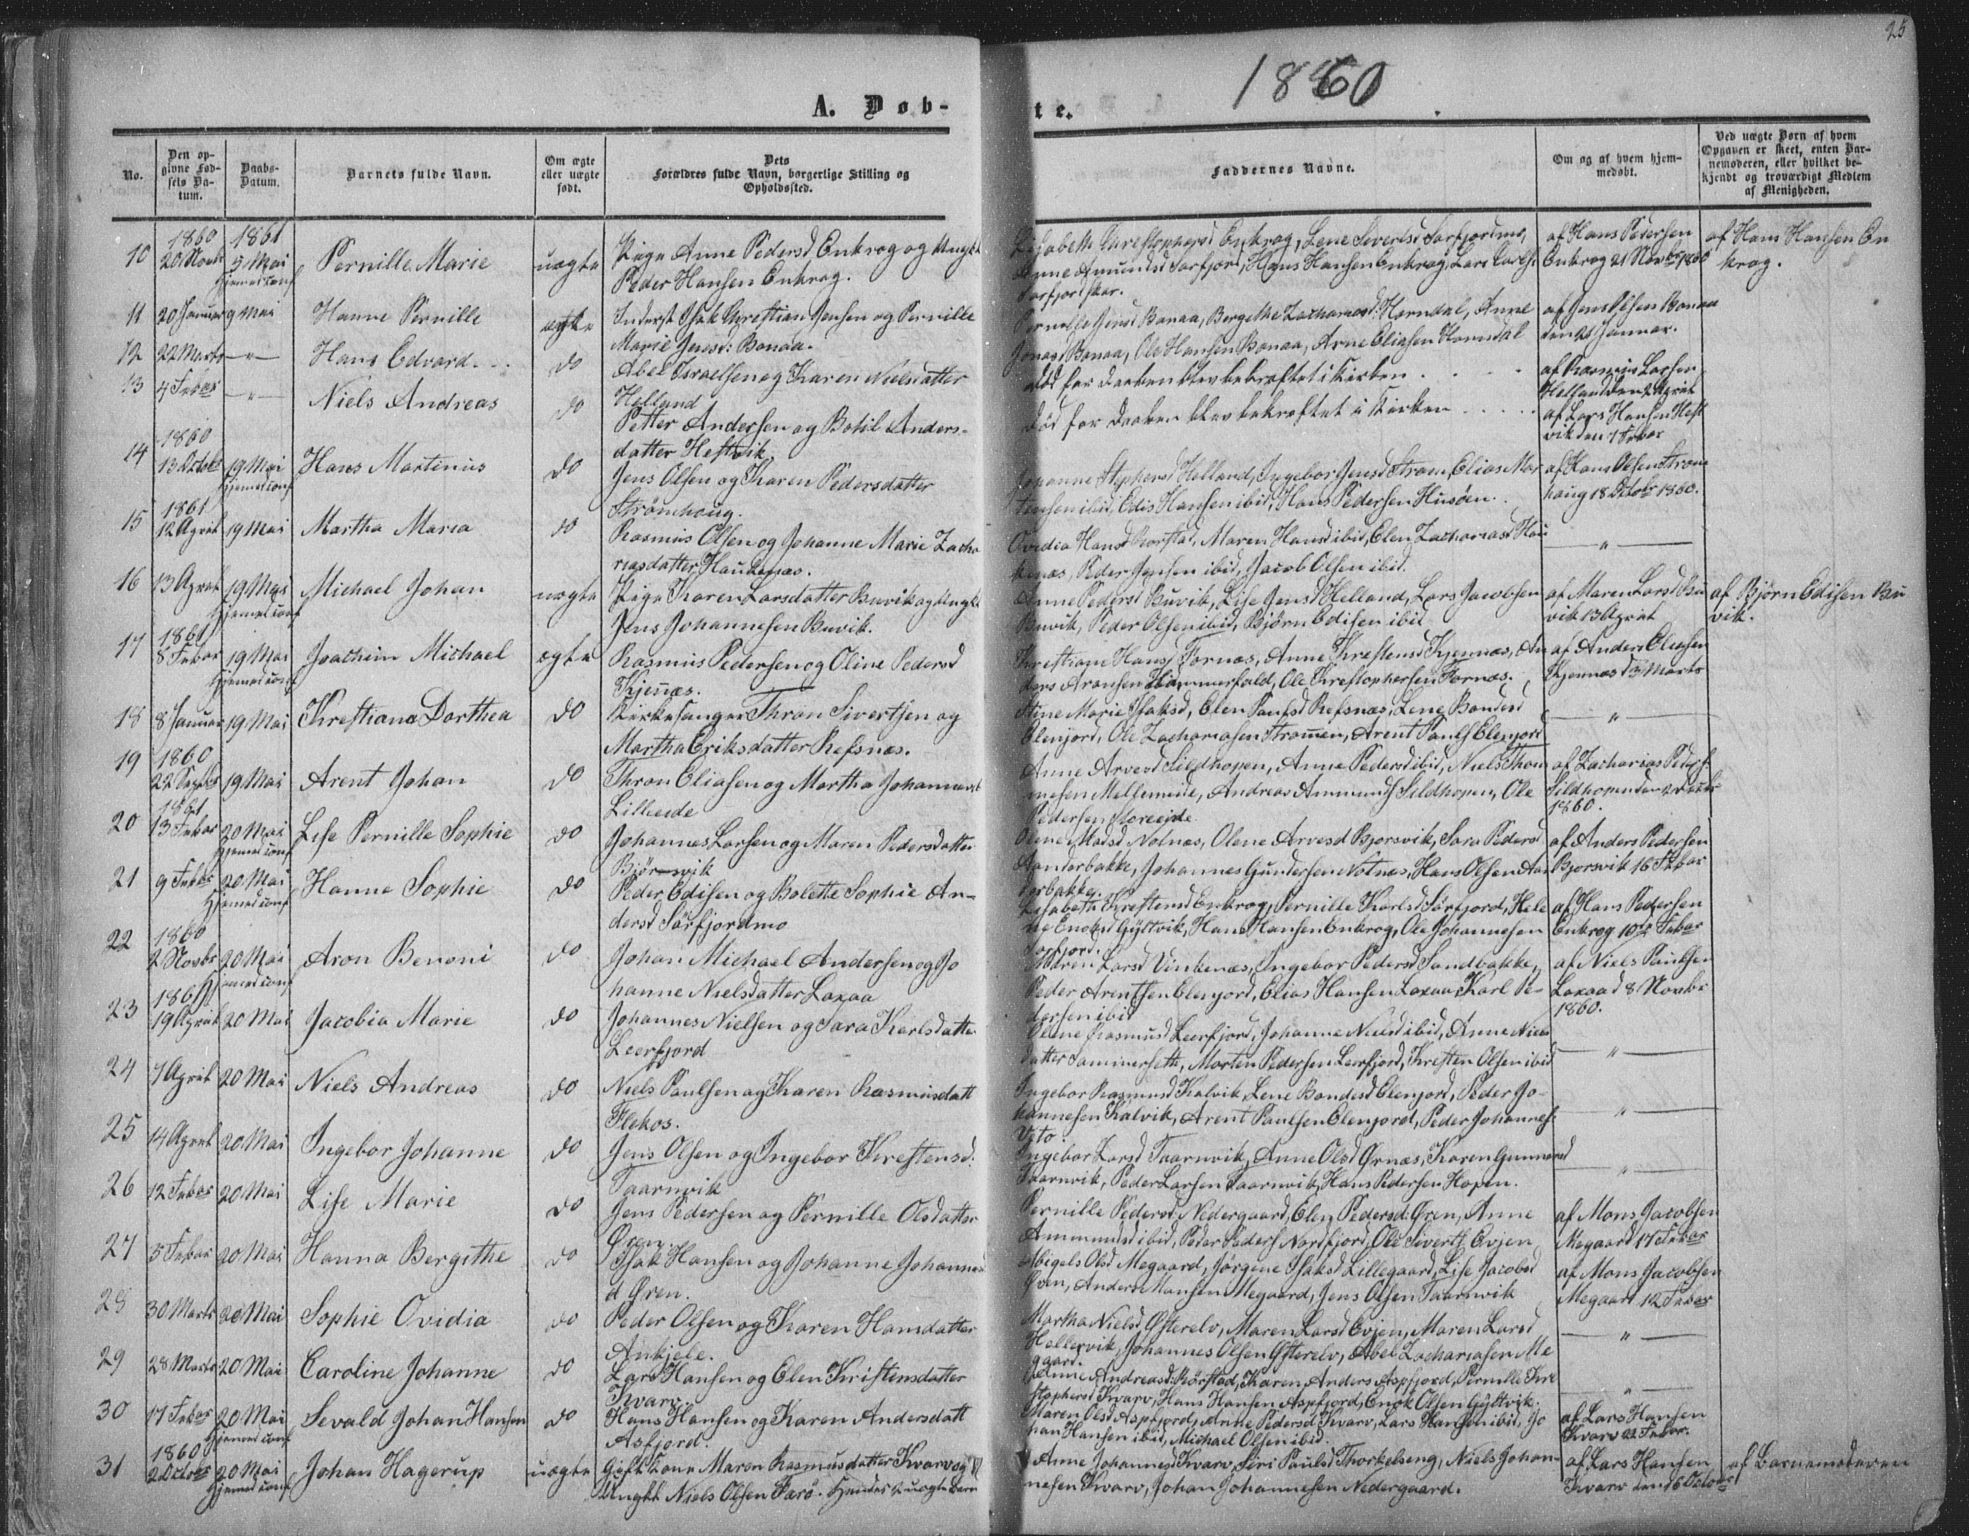 25
1860
A. Døb-
te.
No.
Den op-
givne Fød-
sels Da-
tum.
Daabs-
Datum.
Barnets fulde Navn.
Om ægte
eller uægte
født.
Dets
Forældres fulde Navn, borgerlige Stilling og
Opholdssted.
Faddernes Navne.
Om og af hvem hjem-
medøbt.
Ved uægte Børn af hvem
Opgaven er skeet, enten Bar-
nemoderen, eller hvilket be-
kjendt og troværdigt Medlem
af Menigheden.
1860 1861
10 20 Novbr 9 Mai Pernille Marie uægte Pige Anne Pedersd Enkrog og Ungk
hjemed conf Peder Hansen Enkrog.
Lene Sivertsd Sørfjordmo,
Anne Amundsd Sørfjord, Hans Hansen Enkrog, Lars
af Hans Pedersen
Enkrog 21 Novbr 1860
af Hans Hansen En
krog.
11 20 Januar 9 Mai Hanne Pernille ægte Inderst Isak Christian Jensen og Pernille
Marie Jensd: Bonaa.
Pernille Jensd Bonaa, Bergethe Zachariasd: Horndal, Anne
Jonasd Bonaa, Ole Hansen Bonaa, Arne Eliasen Horndal
af Jens Olsen Bonaa
den 21 Januar.
12 22 Marts -"- Hans Edvard. do Abel Israelsen og Karen Nielsdatter
Helland
død før daaben blev bekræftet i kirken.
af Rasmus Larsen
Helland den 2 April
13 4 Febar -"- Niels Andreas do Petter Andersen og Botil Anders-
datter Heftvik.
død før daaben blev bekræftet i kirken
af Lars Hansen Heft
vik den 7 Febar
1860
14 13 Octobr 19 Mai Hans Martinus do Jens Olsen og Karen Pedersdatter
hjemed conf Strømhaug.
Johanne Stephensd Helland, Ingebor Jensd Strøm, Elias Mor
tensen ibid, Edis Hansen ibid, Hans Pedersen Husøen.
af Hans Olsen Strøm
haug 18 Octobr 1860.
1861
15 12 April 19 Mai Martha Maria do Rasmus Olsen og Johanne Marie Zacha
riasdatter Haukenæs.
Ovedia Hansd Rørstad, Maren Hansd ibid, Elen Zachariasd Hau
kenæs, Peder Jensen ibid, Jacob Olsen ibid.
-"-
16 13 April 19 Mai Michael Johan uægte Pige Karen Larsdatter Buvik og Ungk
hjemed conf Jens Johannesen Buvik.
Anne Pedersd Buvik, Lise Jensd Helland, Lars Jacobsen
Buvik, Peder Olsen ibid, Bjørn Edisen ibid
af Maren Larsd Bu
vik 13 April
af Bjørn Edisen Bu
vik.
1861
17 8 Febar 19 Mai Joachim Michael ægte Rasmus Pedersen og Oline Pedersd
hjemed conf Kjennæs.
Kristiane Hansd Fornæs, Anne Kristensd Kjennæs, An
ders Aronsen Hammerfald, Ole Kristophersen Fornæs.
af Anders Eliasen
Kjennæs d 3 Marts
18 8 Januar 19 Mai Kristiana Dorthea do Kirkesanger Thron Sivertsen og
Martha Eriksdatter Refsnæs.
Stine Marie Isaksd, Elen Paulsd Refsnæs, Lene Bandsd
Elenjord, Ole Zachariasen Strømen, Arent Pauls Elenjord
-"-
1860
19 22 19 Mai Arent Johan do Thron Eliasen og Martha Johannesd
Lilleeide
Anne Arvesd Sildhopen, Anne Pedersd ibid, Niels Thom
mesen Mellemeide, Andreas Ammunds Sildhopen, Ole
Pedersen Storeeide
af Zacharias Peders
Sildhopen den 2
1860.
1861
20 13 Febar 20 Mai Lise Pernille Sophie do Johannes Larsen og Maren Pedersdatter
hjemed conf Bjørsvik
Olene Madsd Notnæs, Olene Arvesd Bjorsvik, Sara Pedersd
Tønderbakke, Johannes Gundersen Notnæs, Hans Olsen
af Anders Pedersen
Bjorsvik 16 Febar
21 9 Febar 20 Mai Hanna Sophie do Peder Edisen og Bolette Sophie An-
hjemed conf dersd Sørfjordmo
Lisabeth Kristensd Enkrog, Pernille Karlsd Sørfjord, Hele
ne Enoksd Gyltvik, Hans Hansen Enkrog, Ole Johannesen
Sørfjord.
af Hans Pedersen
Enkrog 10de Febar
1860
22 2 Novbr 20 Mai Aron Benoni do Johan Michael Andersen og Jo
hjemed conf hanne Nielsdatter Laxaa
Maren Larsd Vinkenæs, Ingebor Pedersd Sandbakke,
Peder Arentsen Elenjord, Elias Hansen Laxaa, Karl Pe-
dersen ibid
af Niels Paulsen
Laxaa d 8 Novbr
1860.
1861
23 19 April 20 Mai Jacobia Marie do Johannes Nielsen og Sara Karlsdatter
Leerfjord
Olene Rasmusd Leerfjord, Johanne Nielsd ibid, Anne Niels
datter Sommersette, Morten Pedersen Leerfjord, Kristen Olsen ibid
-"-
24 7 April 20 Mai Niels Andreas do Niels Paulsen og Karen Rasmusdatt
Flekos.
Ingebor Rasmusd Kalvik, Lene Bandesd Elenjord, Peder Jo-
hannesen Kalvik, Arent Paulsen Elenjord, Peder Johannes
-"-
25 14 April 20 Mai Ingebor Johanne do Jens Olsen og Ingebor Kristensd:
Taarnvik
Ingebor Larsd Taarnvik, Anne Olsd Ørnæs, Karen Gunnarsd
Taarnvik, Peder Larsen Taarnvik, Hans Pedersen Hopen.
-"-
26 12 Febar 20 Mai Lise Marie do Jens Pedersen og Pernille Olsdatter
Øren.
Pernille Pedersd Nedergaard, Elen Pedersd: Øren, Anne
Ammundsd ibid, Peder Peders Nordfjord, Ole Siverts Evjen
af Mons Jacobsen
Megaard 17 Febar
27 5 Febar 20 Mai Hanna Bergithe do Isak Hansen og Johanne Johannes
d Øren.
Abigels Olsd Megaard, Jørgene Isaksd Lillegaard, Lise Jacobsd
Øren, Anders Monsen Megaard, Jens Olsen Taarnvik
af Mons Jacobsen
Megaard 12 Febar
28 30 Marts 20 Mai Sophie Ovidia do Peder Olsen og Karen Hansdatter
Ankjele.
Martha Nielsd Østerelv, Maren Larsd Evjen, Maren Larsd
Hellarvik, Johannes Olsen Østerelv, Abel Zachariasen Me
gaard.
-"-
29 28 Marts 20 Mai Caroline Johanne do Lars Hansen og Elen Kristensdatter
Kvarv
Anne Andreasd: Rørstad, Karen Anders Aspfjord, Pernille Kri
stophersd Kvarv, Hans Hansen Aspfjord, Enok Olsen Gyltvik.
-"-
30 17 Febar 20 Mai Sevald Johan Hansen do Hans Hansen og Karen Andersdatt
hjemed conf Asfjord.
Maren Olsd Aspfjord, Anne Pedersd Kvarv, Lars Hansen ibid, Jo
han Hansen ibid, Michael Olsen ibid.
af Lars Hansen
Kvarv 22 Febar.
1860
31 2 Octobr 20 Mai Johan Hagerup uægte Gift Kone Maren Rasmusdatter Kvarv og
hjemed conf Ungkl Niels Olsen Færø. Hendes 2 uægte Barn
Anne Johannesd Kvarv, Siri Paulsd Thorkelseng, Niels Johan-
nesen Kvarv, Johan Johannesen Nedergaard.
af Lars Hansen
Kvarv den 6 Octobr
af Barnemoderen